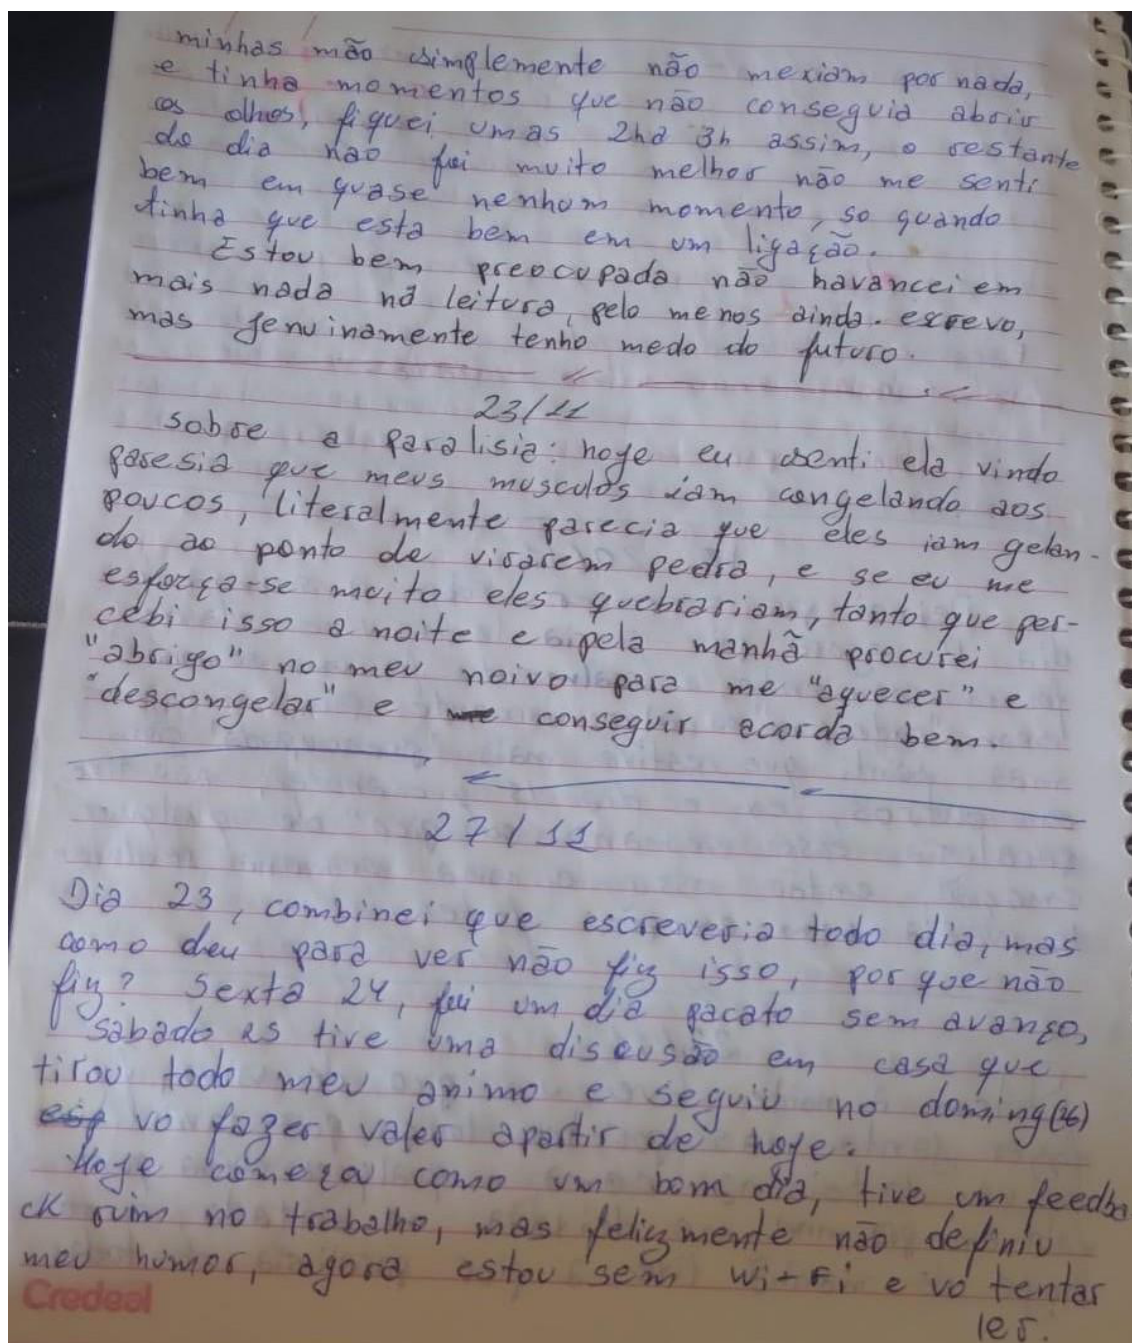 minhas mão simplemente não mexiam por nada,
e tinha momentos que não conseguia abrir
os olhos, fiquei umas 2h a 3h assim, o restante
do dia não foi muito melhor não me senti
bem em quase nenhum momento, so quando
tinha que esta bem em um ligação.
Estou bem preocupada não havancei em
mais nada na leitura, pelo menos ainda. escrevo,
mas genuinamente tenho medo do futuro.
23/11
sobre a paralisia: hoje eu senti ela vindo
paresia que meus musculos iam congelando aos
poucos, literalmente parecia que eles iam gelan-
do ao ponto de virarem pedra, e se eu me
esforça-se muito eles quebrariam, tanto que per-
cebi isso a noite e pela manhã procurei
"abrigo" no meu noivo para me "aquecer" e
"descongelar" e conseguir acorda bem.
27/11
Dia 23, combinei que escreveria todo dia, mas
como deu para ver não fiz isso, por que não
fiz? Sexta 24, foi um dia pacato sem avanço,
sabado 25 tive uma discusão em casa que
tirou todo meu animo e seguiu no doming(26)
vo fazer valer apartir de hoje.
Hoje começou como um bom dia, tive um feedba
ck ruim no trabalho, mas felizmente não definiu
meu humor, agora estou sem wi-fi e vo tentar
ler.
Credeal